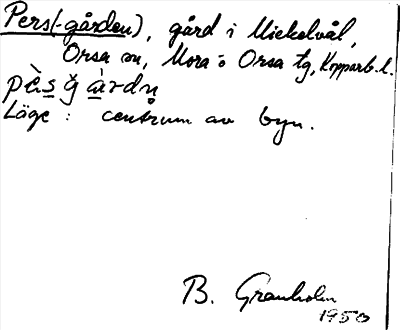 Pers(-gården), gård i Mickelvål,
Orsa sn, Mora o Orsa tg, Kopparb. l.
pès̱ğà̱rdn̥
Läge: centrum av byn.
B. Granholm
1950